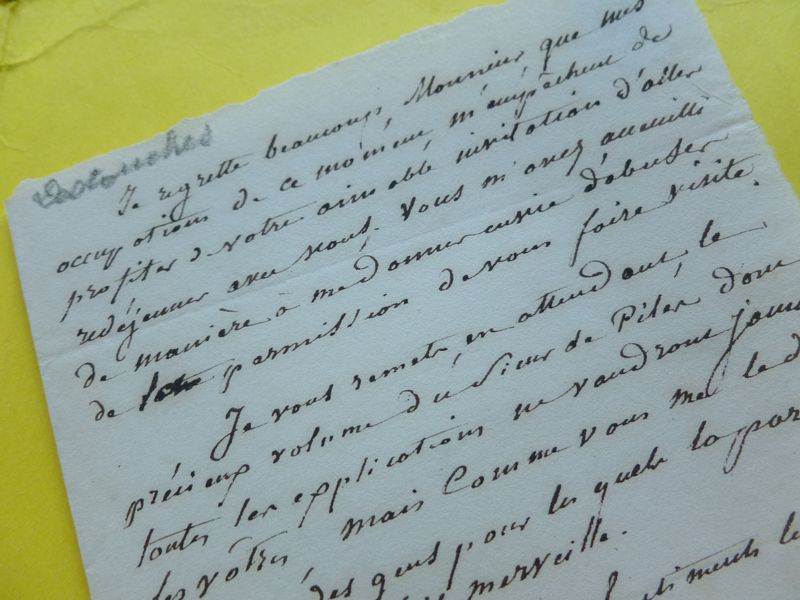 Destouches
Je regrette beaucoup, Monsieur, que mes
occupations de ce moment, m'empêchent de
profiter de votre aimable invitation d'aller
redéjeuner avec vous. Vous m'avez accueilli
de manière à me donner envie d'abuser
de permission de vous faire visite.
Je vous remets, en attendant, le
précieux volume du Sieur de Piles dont
toutes les explications ne vaudront jama
les vôtres, mais comme vous me le d
des gens pour les quels la par
merveille.